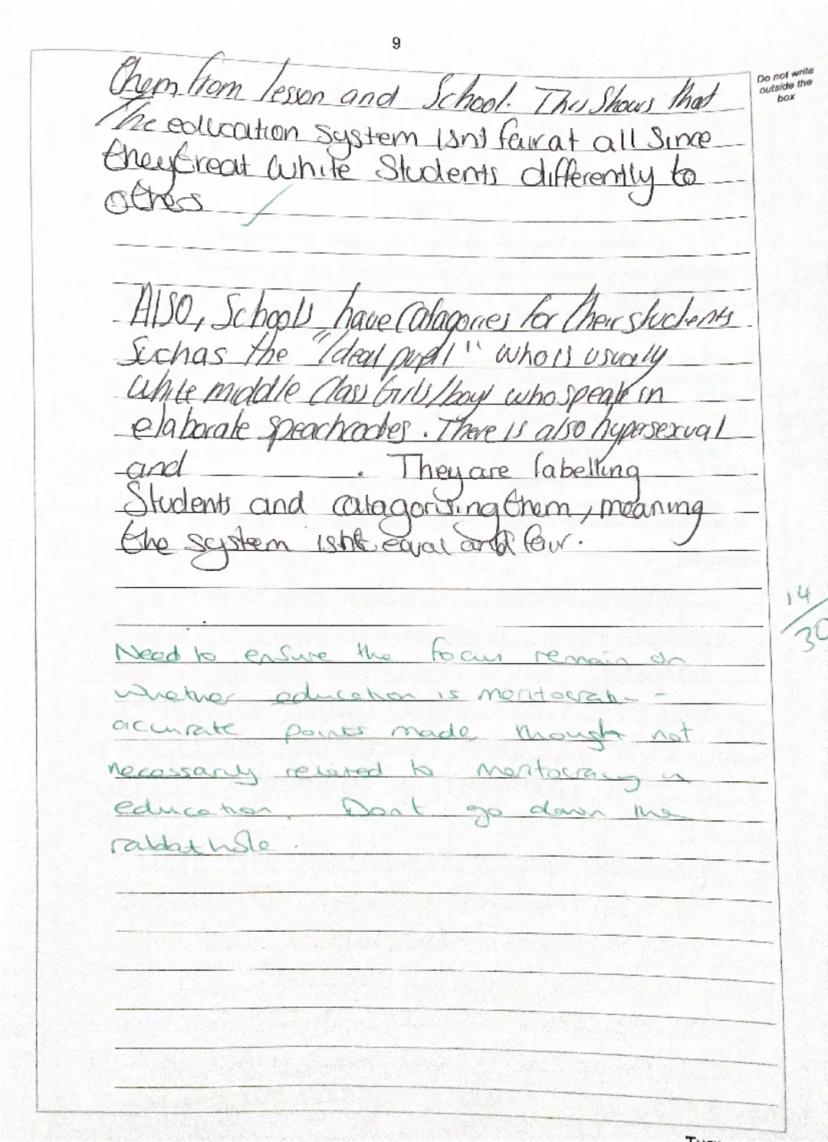 9
Do not write
outside the
box
them from lesson and School. This shows that
The education system isnt fair at all since
they treat white Students differently to
others
Also, Schools have catagories for their students
Such as the "Ideal pupil" who is usually
white middle class Girls/boys who speak in
elaborate speachcodes. There is also hypersexual
and . They are labelling
Students and catagorising them, meaning
the system isnt equal and fair.
14
/30
Need to ensure the focus remain on
whether education is meritocratic -
accurate points made though not
necessarily related to meritocracy in
education. Don't go down the
rabbit hole.